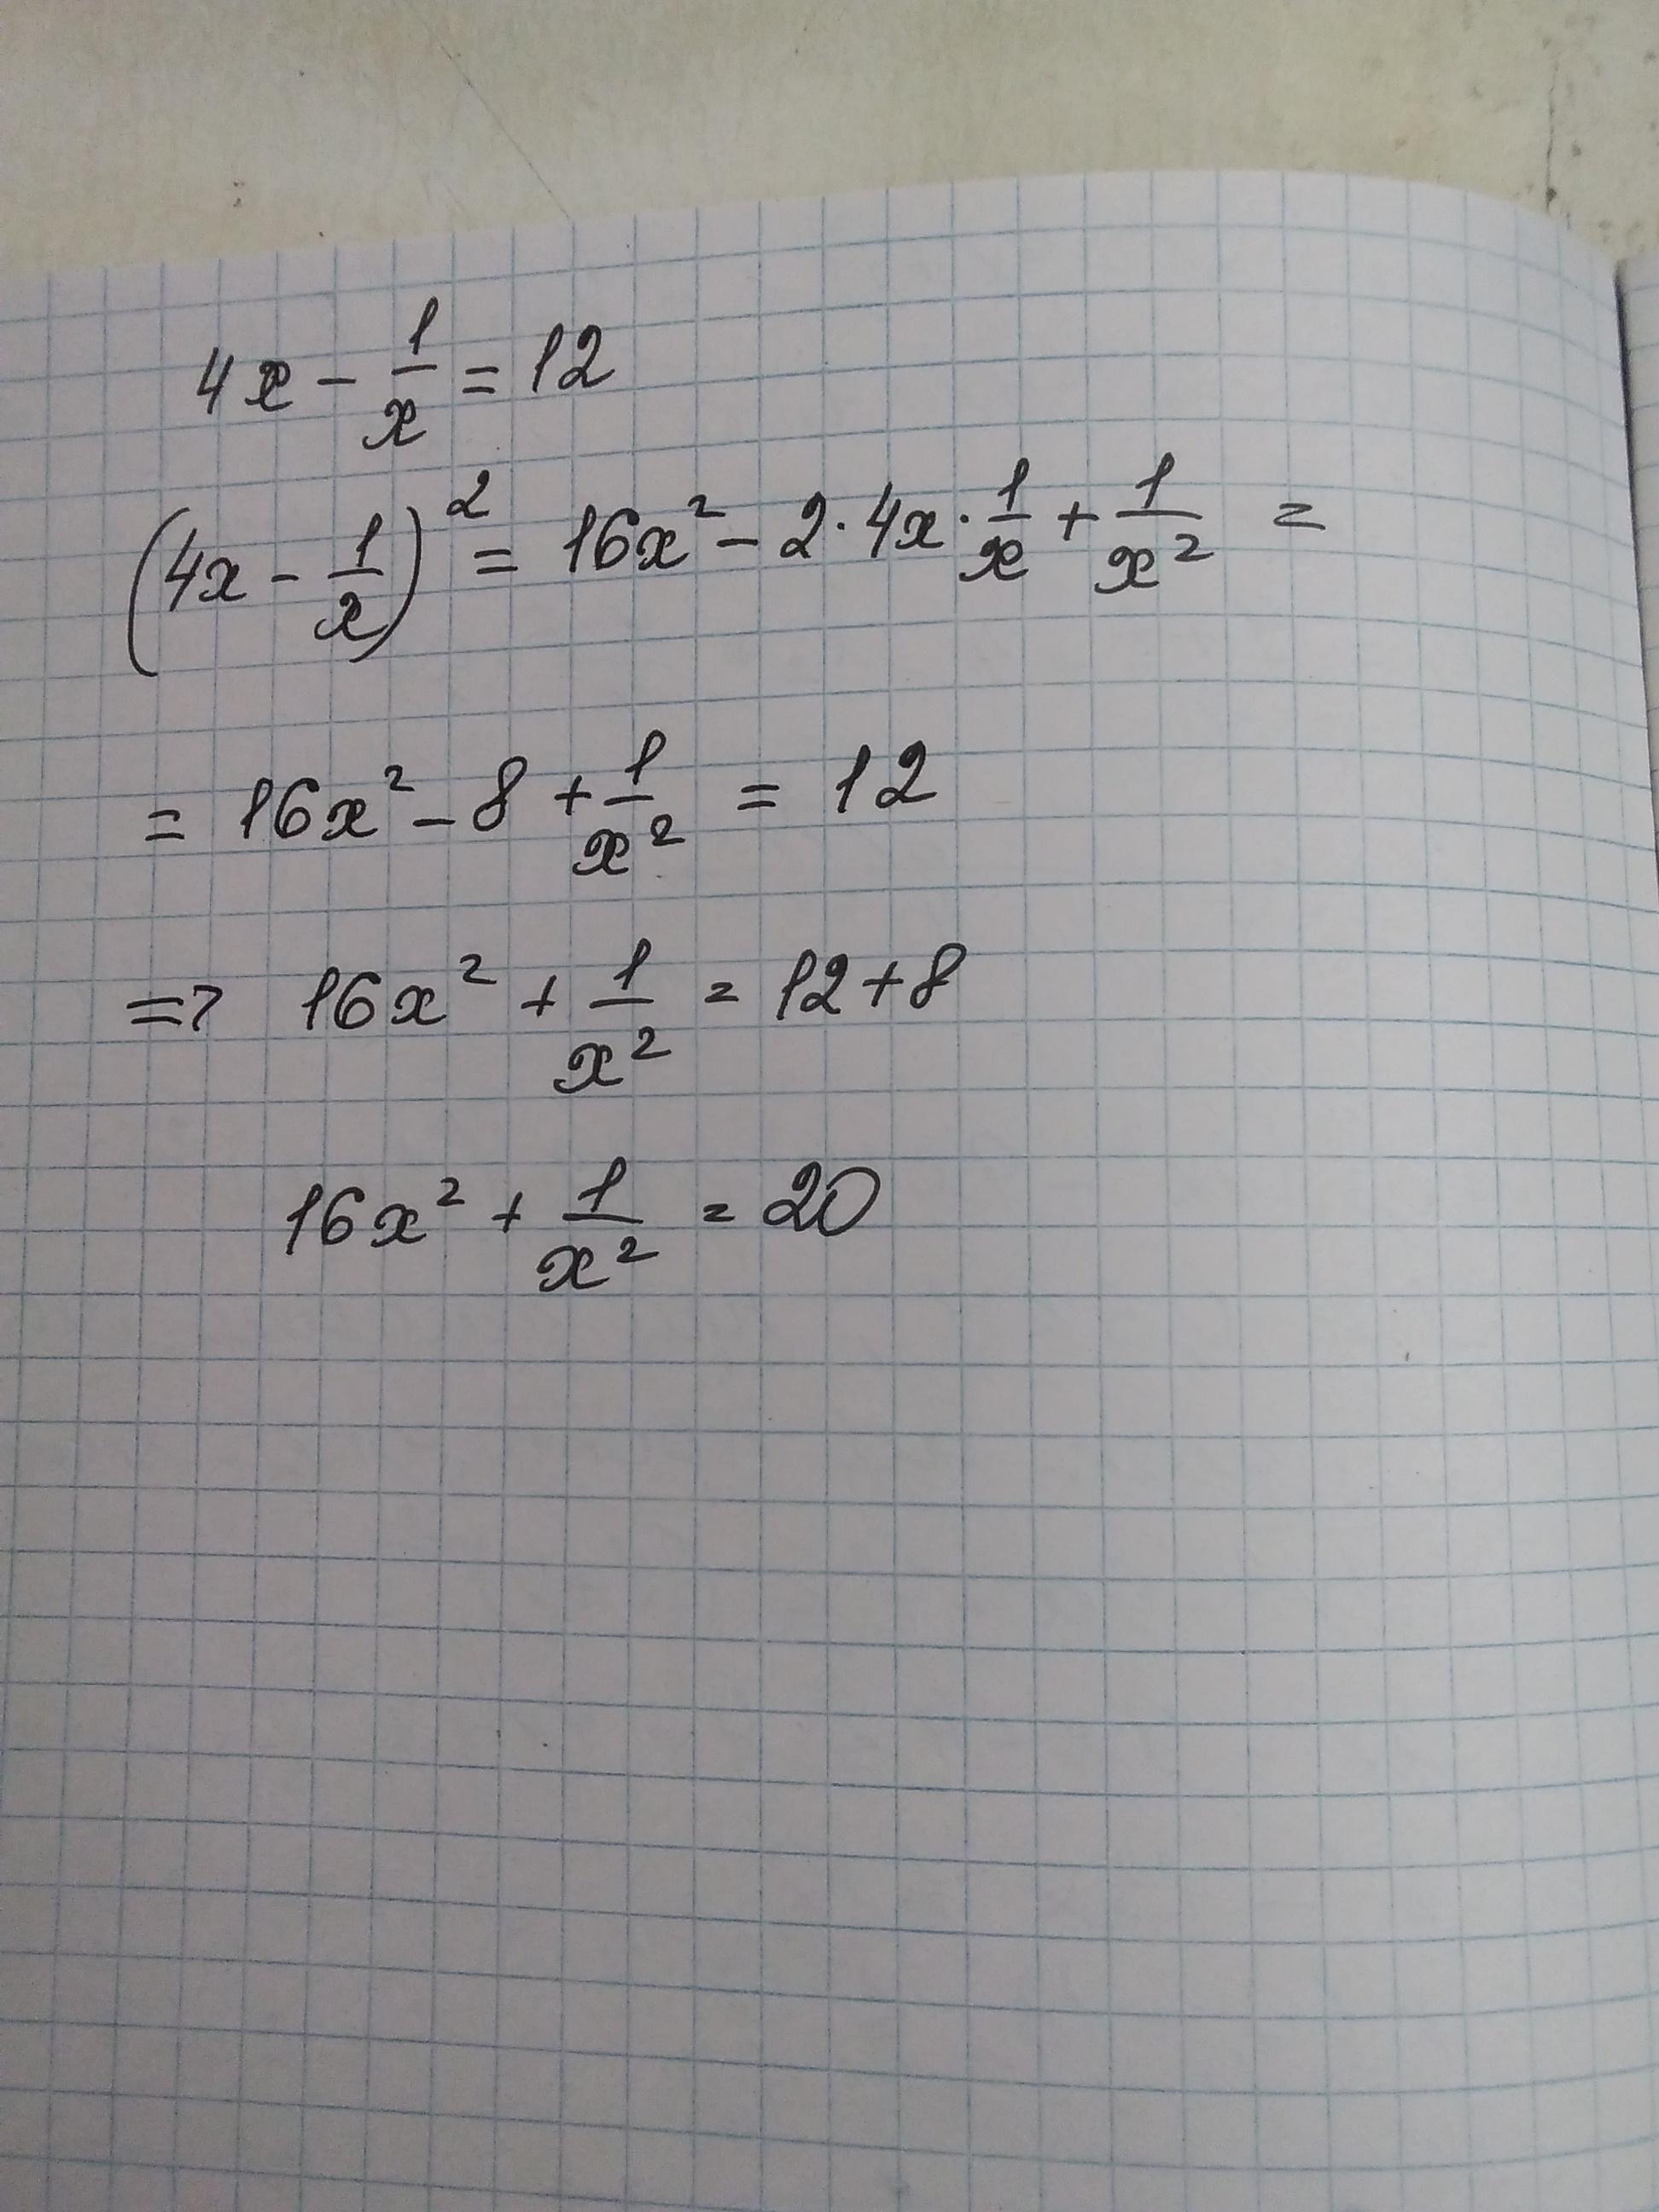 4x - 1/x = 12
(4x - 1/x)² = 16x² - 2·4x·1/x + 1/x² =
= 16x² - 8 + 1/x² = 12
=> 16x² + 1/x² = 12+8
16x² + 1/x² = 20